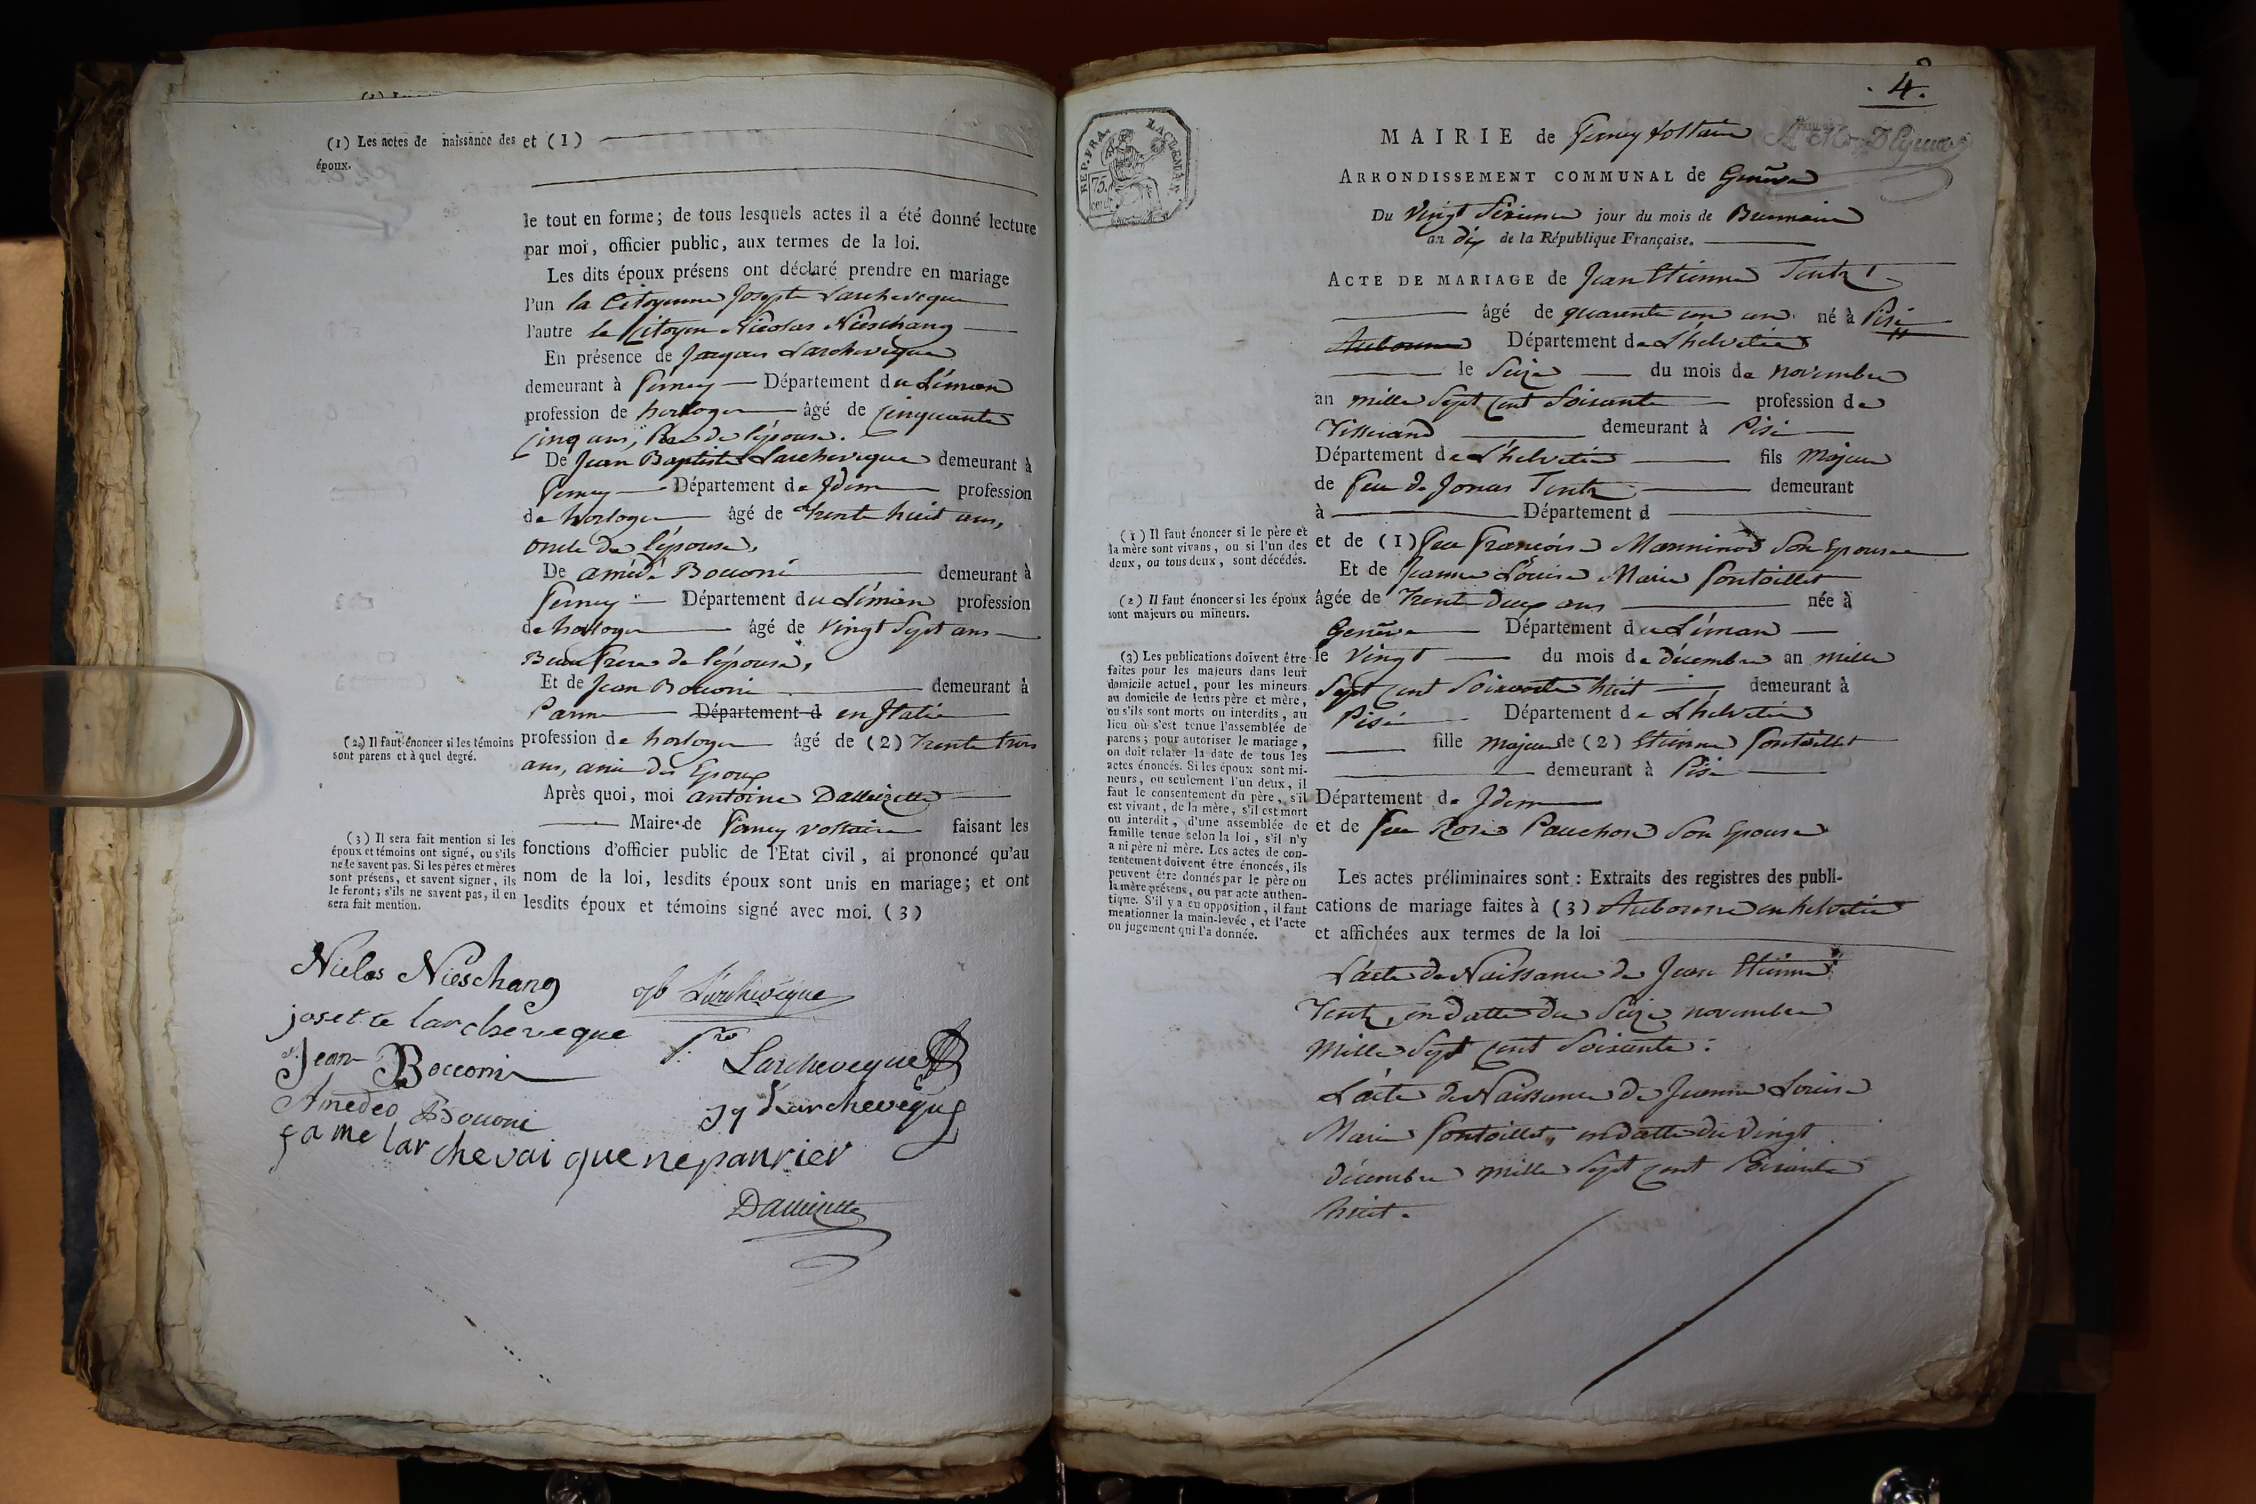 (1) Les actes de naissance des époux.
et (1)
le tout en forme; de tous lesquels actes il a été donné lecture
par moi, officier public, aux termes de la loi.
Les dits époux présens ont déclaré prendre en mariage
l'un la Citoyenne Josepte Larcheveque
l'autre le Citoyen Nicolas Nieschang
En présence de Jacques Larcheveque
demeurant à Ferney Département du Léman
profession de horloger âgé de Cinquante
Cinq ans, Pere de l'épouse.
De Jean Baptiste Larcheveque demeurant à
Ferney Département de Idem profession
de horloger âgé de trente huit ans,
oncle de l'épouse,
De amédé Bocconi demeurant à
Ferney Département du Léman profession
de horloger âgé de vingt Sept ans
Beau frere de l'épouse,
Et de Jean Bocconi demeurant à
Parme Département d en Italie
(2) Il faut énoncer si les témoins
sont parens et à quel degré.
profession de horloger âgé de (2) trente trois
ans, ami des Epoux
Après quoi, moi antoine Dallizette
Maire de Ferney voltaire faisant les
(3) Il sera fait mention si les
époux et témoins ont signé, ou s'ils
ne le savent pas. Si les pères et mères
sont présens, et savent signer, ils
le feront; s'ils ne savent pas, il en
sera fait mention.
fonctions d'officier public de l'Etat civil, ai prononcé qu'au
nom de la loi, lesdits époux sont unis en mariage; et ont
lesdits époux et témoins signé avec moi. (3)
Niclas Nieschang
Larcheveque
josette larcheveque
Larcheveque
Jean Bocconi
Jq Larcheveque
Amedeo Bocconi
fame larchevaique nepanrier
Dallizette
4.
REP. FRA.
LAC LEMAN
75.
cent.
MAIRIE de Ferney Voltaire
ARRONDISSEMENT COMMUNAL de Genêve
Du Vingt Sixieme jour du mois de Brumaire
an dix de la République Française.
ACTE DE MARIAGE de Jean Etienne Tentz
âgé de quarente un ans né à Pisi
Aubonne Département de L'helvetie
le Seize du mois de novembre
an mille Sept Cent Soixante profession de
Tisserand demeurant à Pisi
Département de L'helvetie fils Majeur
de feu de Jonas Tentz demeurant
à Département d
(1) Il faut énoncer si le père et
la mère sont vivans, ou si l'un des
deux, ou tous deux, sont décédés.
et de (1) feu francoise Manninod Son Epouse
Et de Jeanne Louise Marie Pontoillet
(2) Il faut énoncer si les époux
sont majeurs ou mineurs.
âgée de trente deux ans née à
Genêve Département du Léman
(3) Les publications doivent être
faites pour les majeurs dans leur
domicile actuel, pour les mineurs
au domicile de leurs père et mère,
ou s'ils sont morts ou interdits, au
lieu où s'est tenue l'assemblée de
parens; pour autoriser le mariage,
on doit relater la date de tous les
actes énoncés. Si les époux sont mi-
neurs, ou seulement l'un deux, il
faut le consentement du père, s'il
est vivant, de la mère, s'il est mort
ou interdit, d'une assemblée de
famille tenue selon la loi, s'il n'y
a ni père ni mère. Les actes de con-
sentement doivent être énoncés, ils
peuvent être donnés par le père ou
la mère présens, ou par acte authen-
tique. S'il y a eu opposition, il faut
mentionner la main-levée, et l'acte
ou jugement qui l'a donnée.
le Vingt du mois de décembre an mille
Sept Cent Soixante huit demeurant à
Pisi Département de L'helvetie
fille majeure de (2) Etienne Pontoillet
demeurant à Pisi
Département de Idem
et de feu Rose Pauchon Son Epouse
Les actes préliminaires sont : Extraits des registres des publi-
cations de mariage faites à (3) Aubonne en helvetie
et affichées aux termes de la loi
L'acte de Naissance de Jean Etienne
Tentz, en datte du Seize novembre
Mille Sept Cent Soixante :
L'acte de Naissance de Jeanne Louise
Marie Pontoillet, en datte du vingt
décembre mille Sept Cent Soixante
huit.